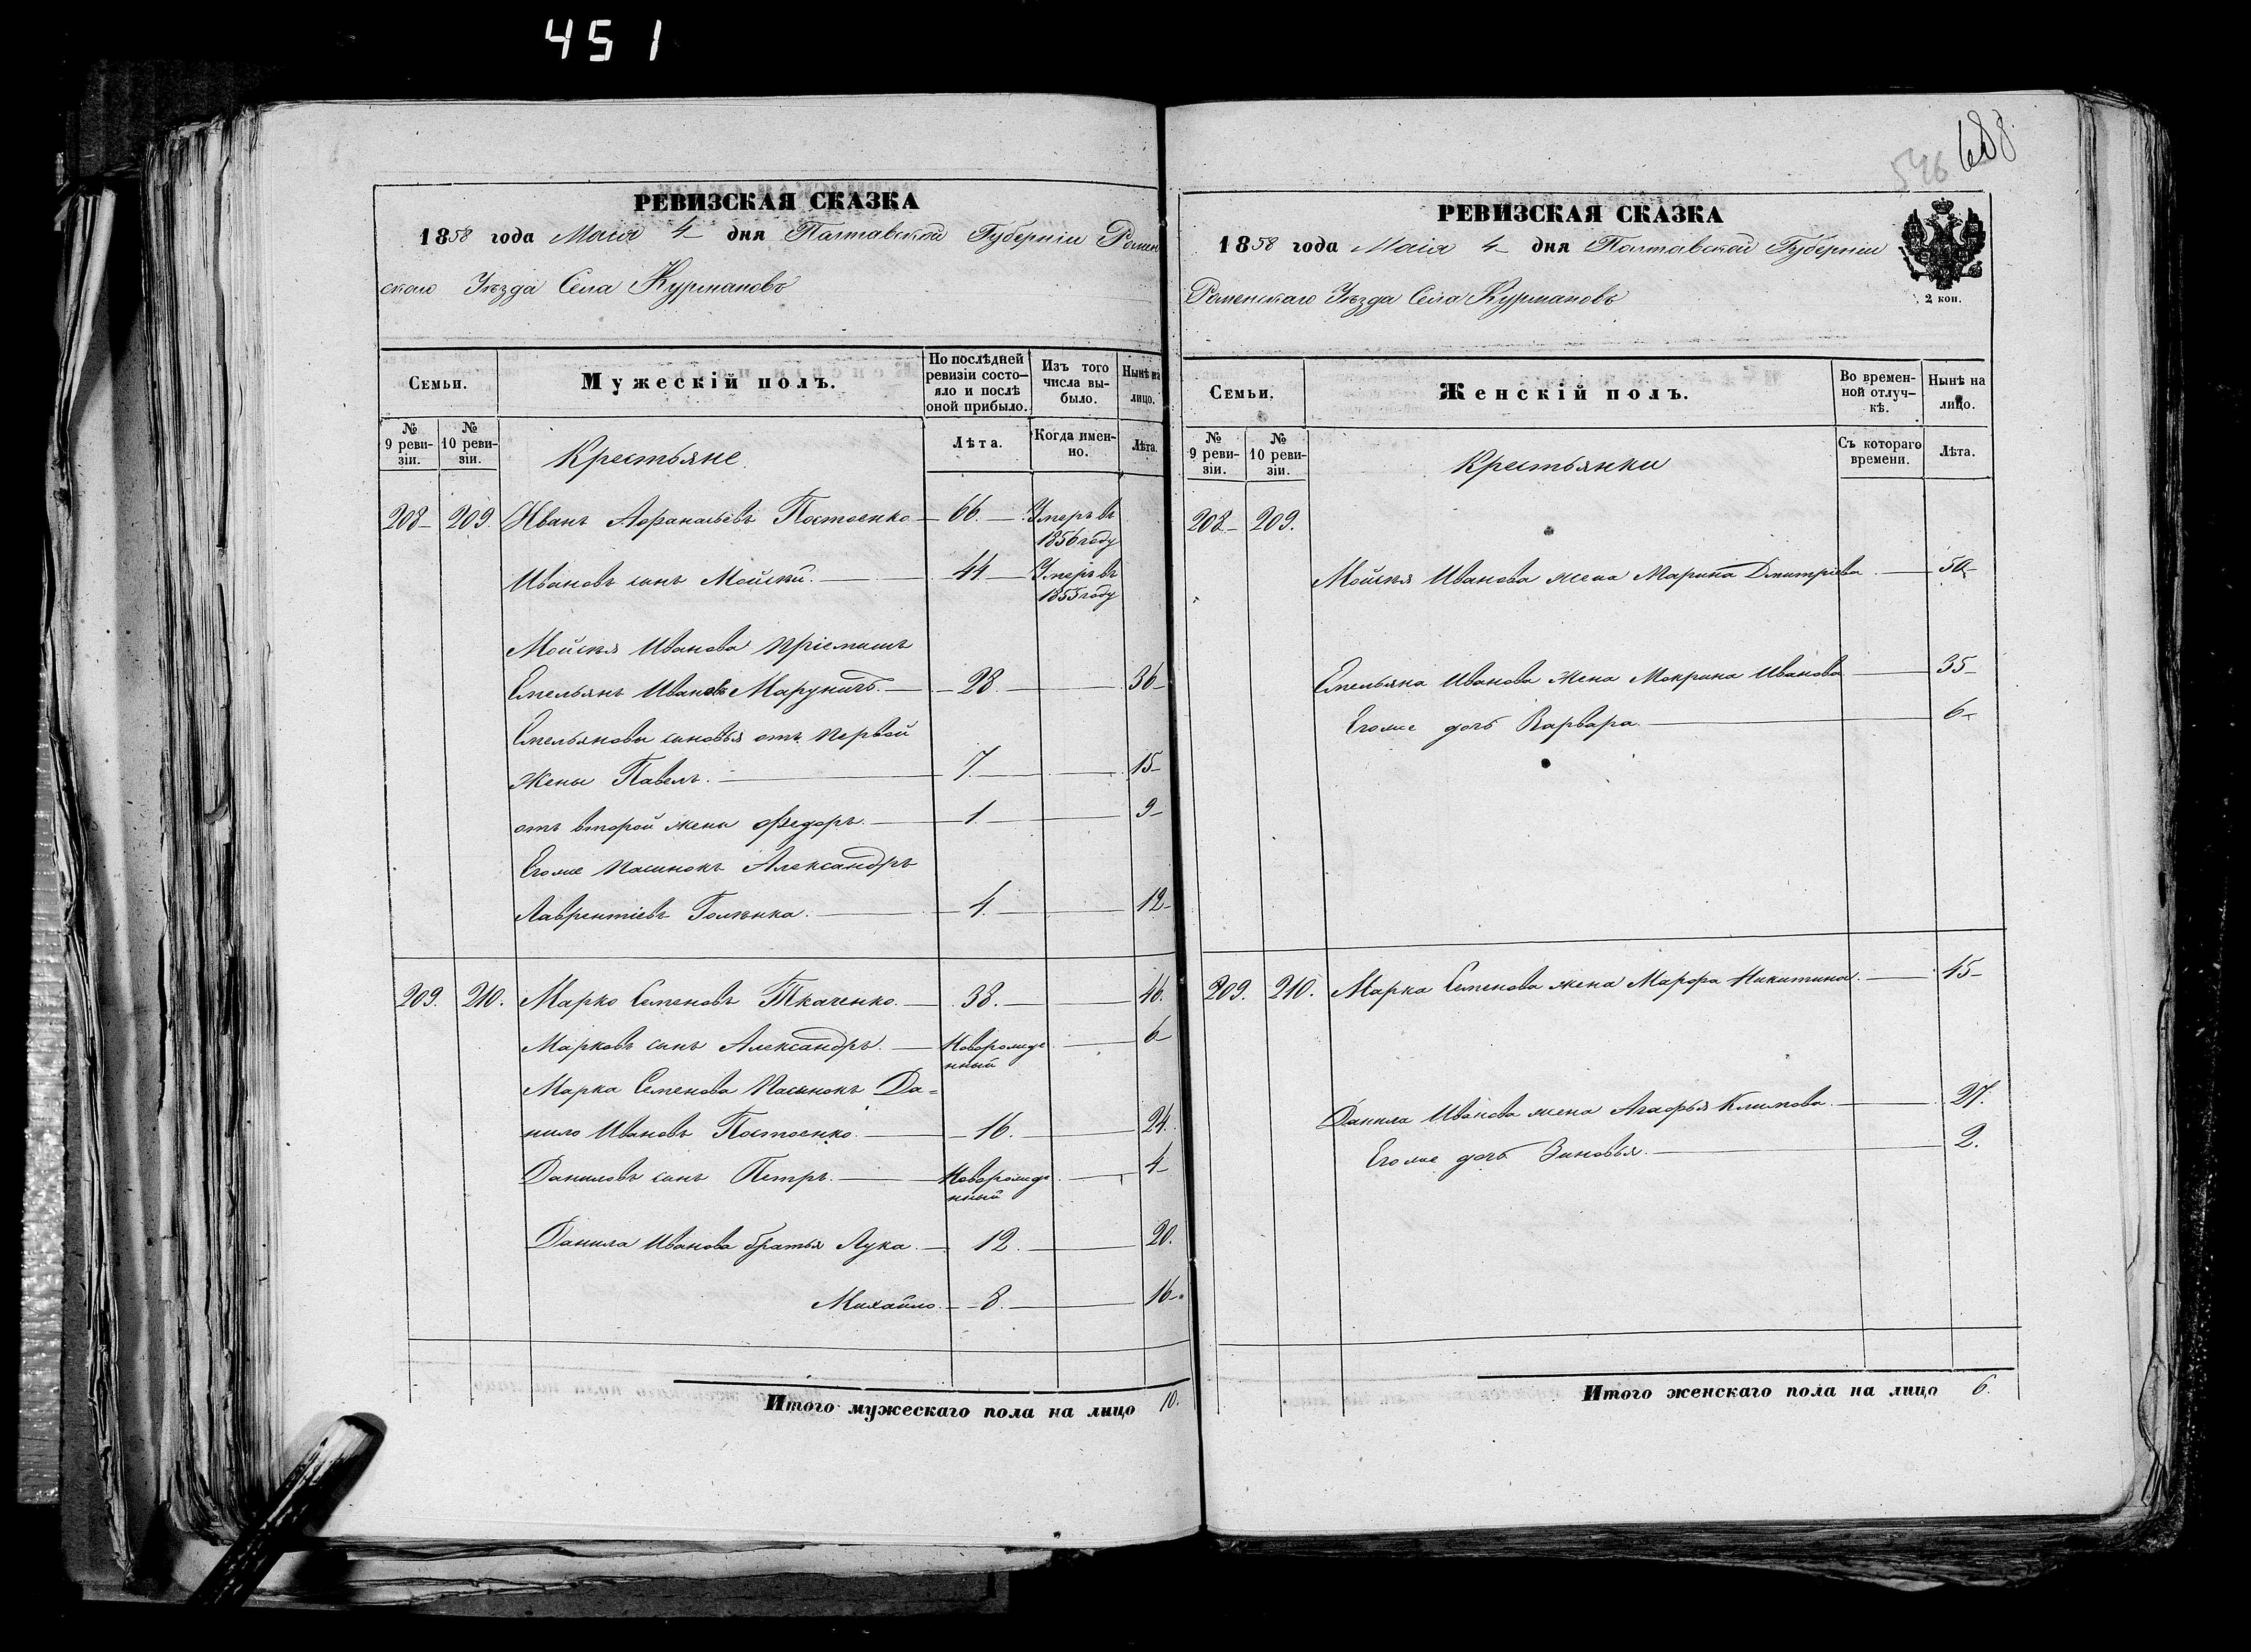 451
РЕВИЗСКАЯ СКАЗКА
1858 года Маія 4 дня Полтавской Губерніи Ромен
скаго Уѣзда Села Курмановъ
Семьи.
Мужескій полъ.
По послѣдней ревизіи состо-яло и послѣ оной прибыло.
Изъ того числа вы-было.
Нынѣ на лицо.
№ 9 реви-зіи.
№ 10 реви-зіи.
Крестьяне.
Лѣта.
Когда имен-но.
Лѣта.
208 209. Иванъ Афанасьевъ Постоенко 66. Умеръ въ 1856 году
Ивановъ сынъ Мойсѣй. 44 Умеръ въ 1855 году
Мойсѣя Иванова пріемышъ
Емельянъ Ивановъ Маруничъ. 28. 36
Емельяновы сыновья отъ первой
жены Павелъ. 7. 15
отъ второй жены Федоръ. 1. 9
Его же пасынокъ Александръ
Лаврентіевъ 4. 12
209. 210. Марко Семеновъ Ткаченко. 38. 46.
Марковъ сынъ Александръ. Новорожде нный 6
Марка Семенова пасынокъ Да=
нило Ивановъ Постоенко. 16. 24.
Даниловъ сынъ Петръ. Новорожде нный 4
Данила Иванова братья Лука. 12. 20.
Михайло. 8. 16.
Итого мужескаго пола на лицо 10.
546 688
РЕВИЗСКАЯ СКАЗКА
1858 года Маія 4 дня Полтавской Губерніи
Роменскаго Уѣзда Села Курмановъ
2 коп.
Семьи.
Женскій полъ.
Во времен-ной отлуч-кѣ.
Нынѣ на лицо.
№ 9 реви-зіи.
№ 10 реви-зіи.
Крестьянки
Съ котораго времени.
Лѣта.
208. 209.
Мойсѣя Иванова жена Марина Дмитріева 50
Емельяна Иванова жена Мокрина Иванова 35
Его же дочь Варвара. 6
209. 210. Марка Семенова жена Марфа Никитина. 45
Данила Иванова жена Агафья Климова. 27.
Его же дочь Зиновья. 2.
Итого женскаго пола на лицо 6.